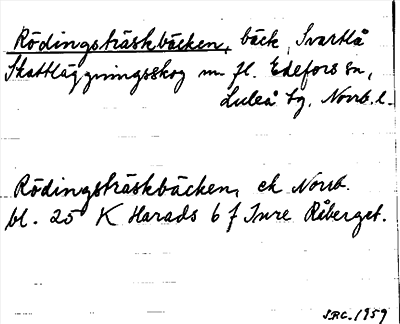 Rödingsträskbäcken, bäck, Svartlå
Skattläggningsskog m. fl. Edefors sn,
Luleå tg, Norrb. l.
Rödingsträskbäcken, ek Norrb.
bl. 25 K Harads b f Inre Råberget.
J.R.C. 1959